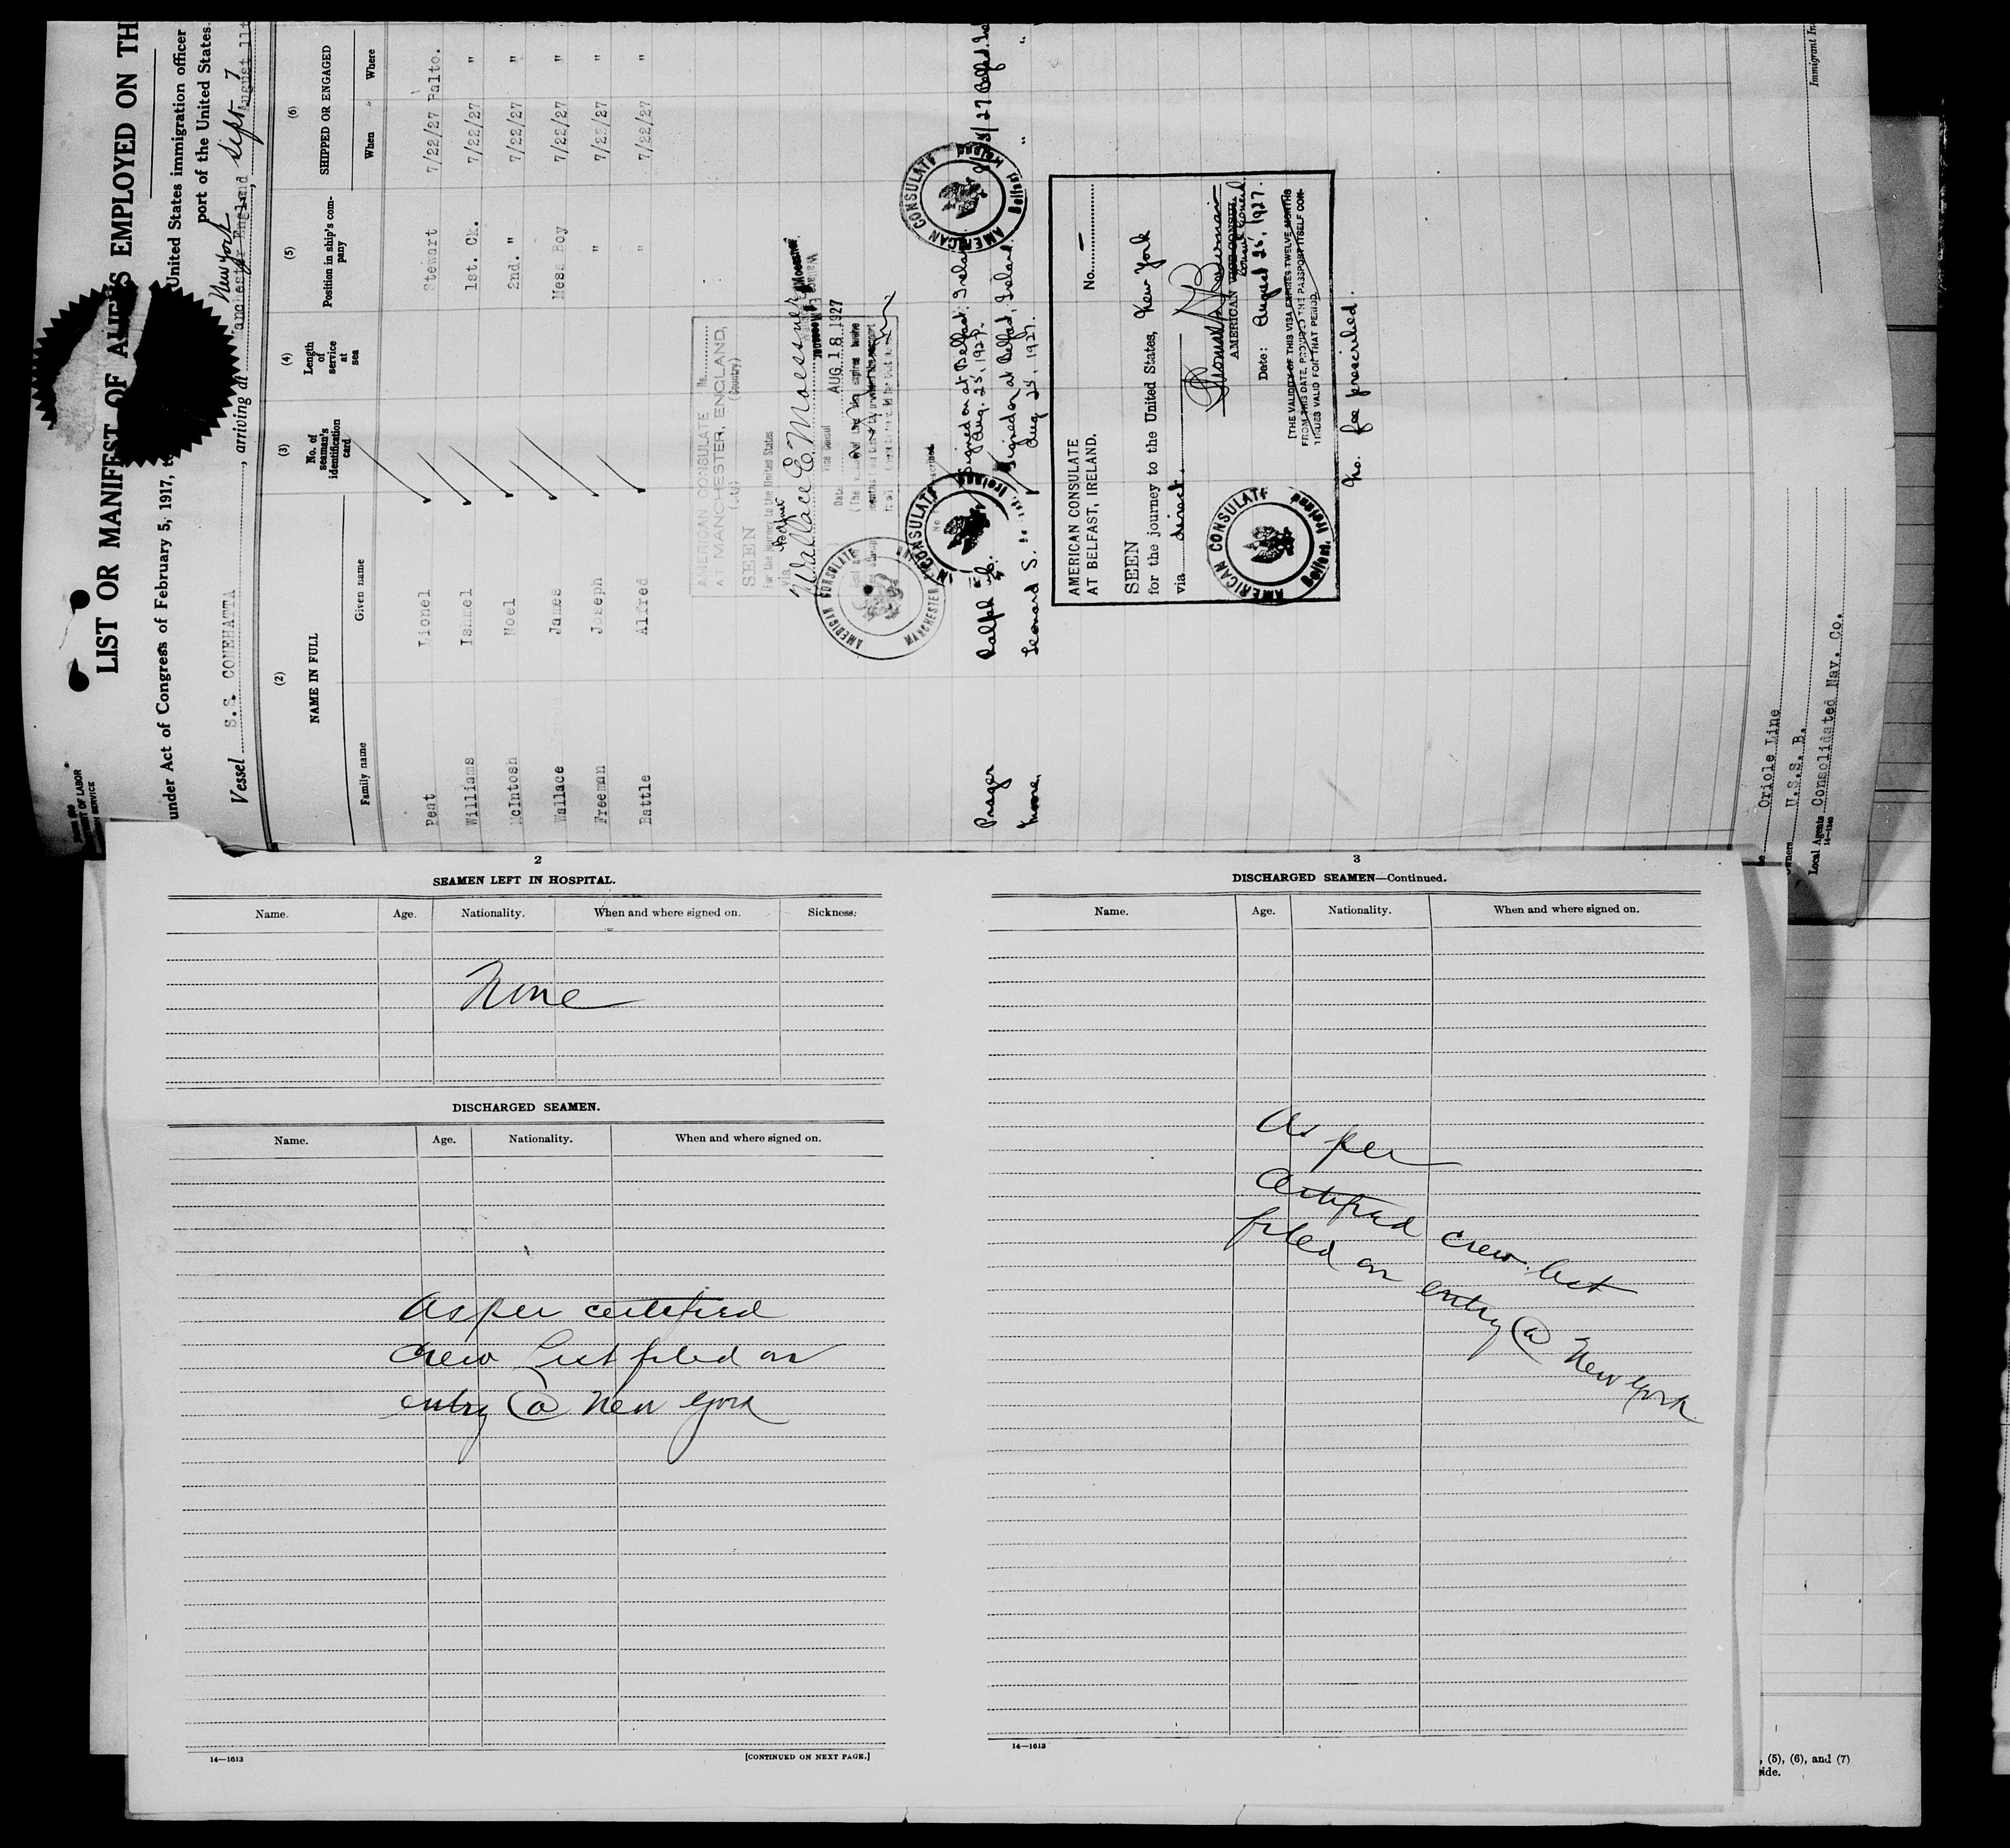 LIST OR MANIFEST OF ALIENS EMPLOYED ON TH
under Act of Congress of February 5, 1917, to United States immigration officer
port of the United States
Vessel S.S. CONEHATTA, arriving at Manchester England August 11t
New York Sept 7
DEPARTMENT OF LABOR
(2) (3) (4) (5) (6)
NAME IN FULL No. of seaman's identification card Length of service at sea Position in ship's company SHIPPED OR ENGAGED
Family name Given name When Where
Peat Lionel Stewart 7/22/27 Balto.
Williams Ishmel 1st. Ck. 7/22/27 "
McIntosh Noel 2nd. " 7/22/27 "
Wallace James Mess Boy 7/22/27 "
Freeman Joseph " 7/22/27 "
Battle Alfred " 7/22/27 "
AMERICAN CONSULATE No.
AT MANCHESTER, ENGLAND,
(City) (Country)
SEEN
For the journey to the United States
via
Wallace E. Moessner
Vice Consul
Date AUG. 18 1927
AMERICAN CONSULATE
MANCHESTER
Prager Ralph Signed on at Belfast Ireland 27 Belfast
Aug. 25, 1927.
Moore, Leonard S. Signed on at Belfast, Ireland. " "
Aug 25, 1927.
AMERICAN CONSULATE Belfast Ireland
AMERICAN CONSULATE Ireland
AMERICAN CONSULATE
AT BELFAST, IRELAND. No. —
SEEN
for the journey to the United States, New York
via direct.
AMERICAN VICE CONSUL
Consul General
Date: August 25, 1927.
[THE VALIDITY OF THIS VISA EXPIRES TWELVE MONTHS
FROM THIS DATE, PROVIDED THE PASSPORT ITSELF CON-
TINUES VALID FOR THAT PERIOD.
AMERICAN CONSULATE Belfast, Ireland
No fee prescribed.
Oriole Line
U.S.S. B.
Local Agents Consolidated Nav. Co.
14—1240
Immigrant In
2
SEAMEN LEFT IN HOSPITAL.
Name. Age. Nationality. When and where signed on. Sickness.
None
DISCHARGED SEAMEN.
Name. Age. Nationality. When and where signed on.
As per certified
crew List filed on
entry @ New York
14—1613 [CONTINUED ON NEXT PAGE.]
3
DISCHARGED SEAMEN—Continued.
Name. Age. Nationality. When and where signed on.
As per
Certified crew list
filed on entry @ New York
14—1613
, (5), (6), and (7)
side.